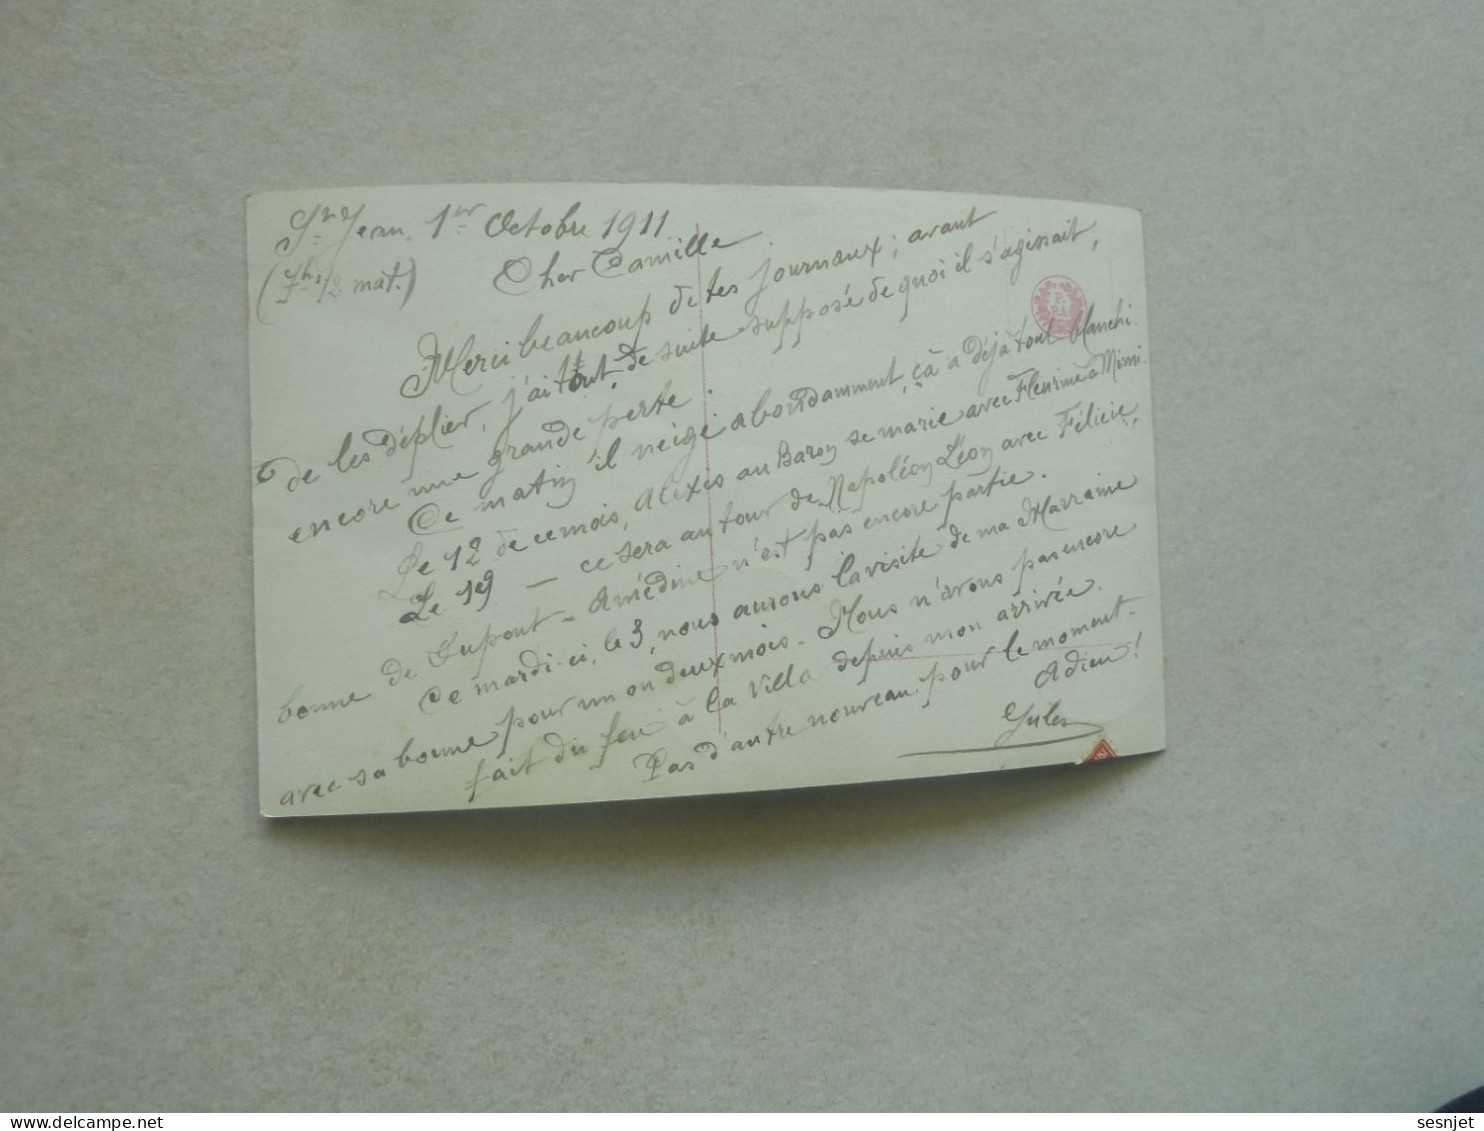 St Jean, 1er Octobre 1911
(7h 1/2 mat.)
Cher Camille
Merci beaucoup de tes journaux; avant
de les déplier, j'ai tout de suite supposé de quoi il s'agissait,
encore une grande perte.
Ce matin il neige abondamment, çà a déjà tout blanchi.
Le 12 de ce mois, Alexis au Baron se marie avec Fleurine à Mimi.
Le 19 — ce sera au tour de Napoléon Léon avec Félicie,
bonne de Dupont - Amédine n'est pas encore partie.
Ce mardi-ci, le 3, nous aurons la visite de ma Marraine
avec sa bonne pour un ou deux mois - Nous n'avons pas encore
fait du feu à la villa depuis mon arrivée.
Pas d'autre nouveau pour le moment -
Adieu!
Jules
sesnjet